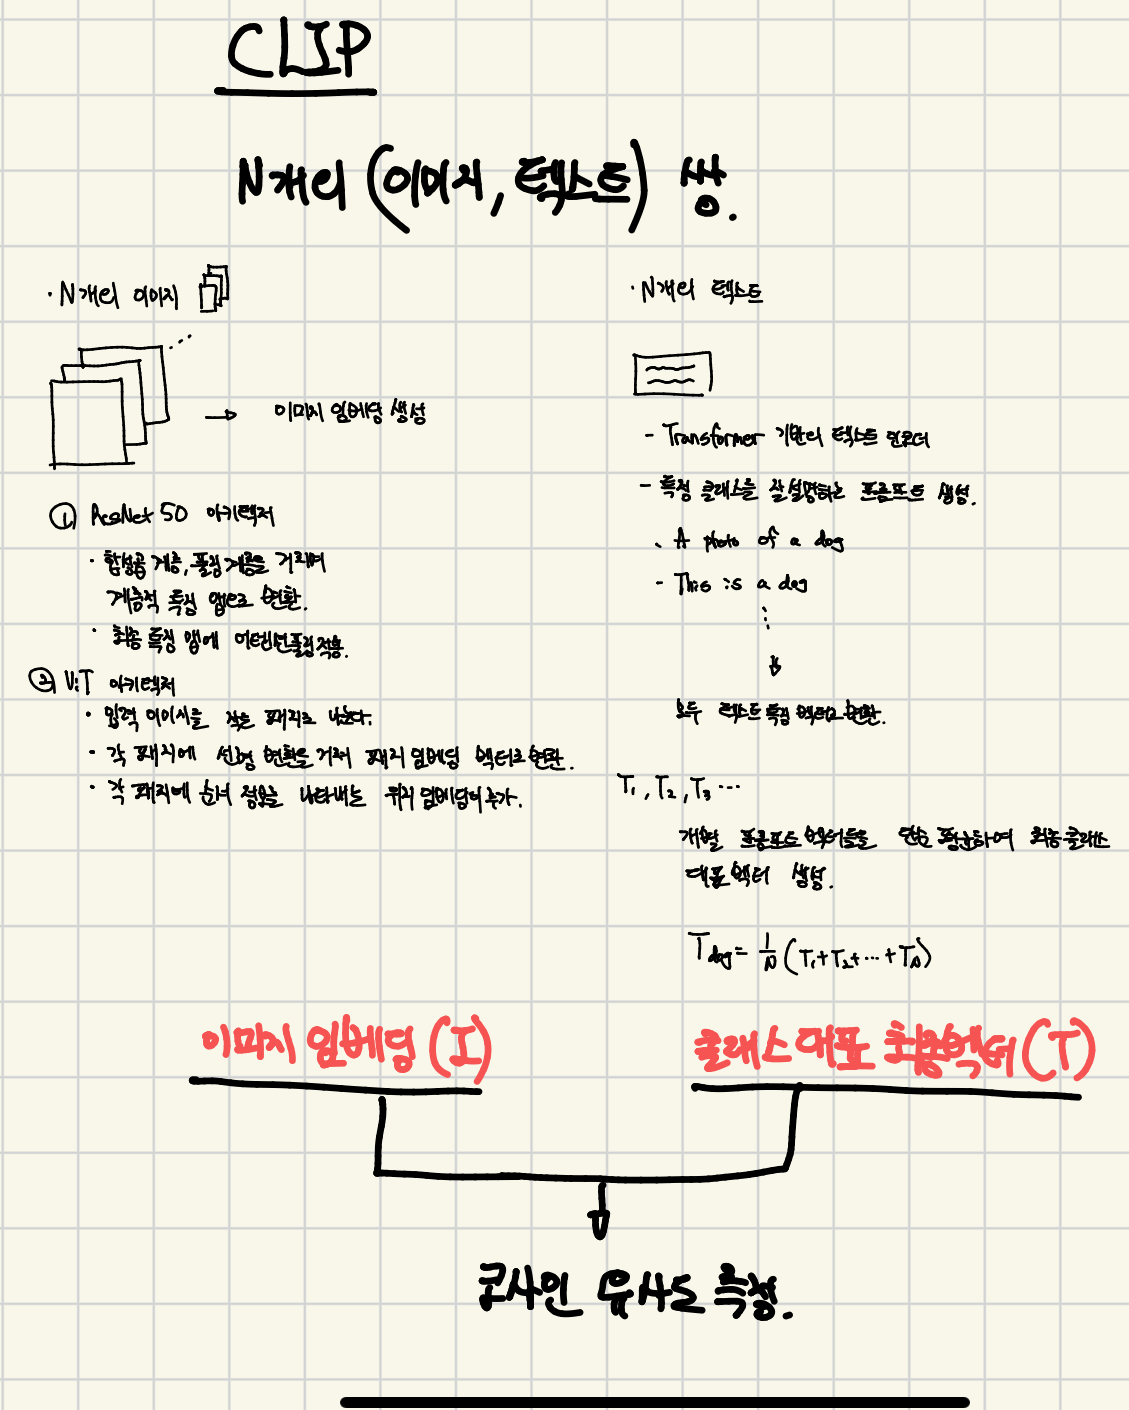 CLIP
N개의 (이미지, 텍스트) 쌍.
· N개의 이미지
→ 이미지 임베딩 생성
① ResNet 50 아키텍처
· 합성곱 계층, 풀링 계층을 거치며
계층적 특징 맵으로 변환.
· 최종 특징 맵에 어텐션풀링적용.
② ViT 아키텍처
· 입력 이미지를 작은 패치로 나눈다.
· 각 패치에 선형 변환을 거쳐 패치 임베딩 벡터로 변환.
· 각 패치에 순서 정보를 나타내는 위치 임베딩이 추가.
· N개의 텍스트
- Transformer 기반의 텍스트 인코더
- 특정 클래스를 잘 설명하는 프롬프트 생성.
· A photo of a dog
- This is a dog
모두 텍스트 특징 벡터로 변환.
T₁, T₂, T₃ ...
개별 프롬프트 벡터들을 단순 평균하여 최종 클래스
대표 벡터 생성.
T dog = 1/N (T₁+T₂+...+T_N)
이미지 임베딩 (I)
클래스 대표 최종벡터 (T)
코사인 유사도 측정.